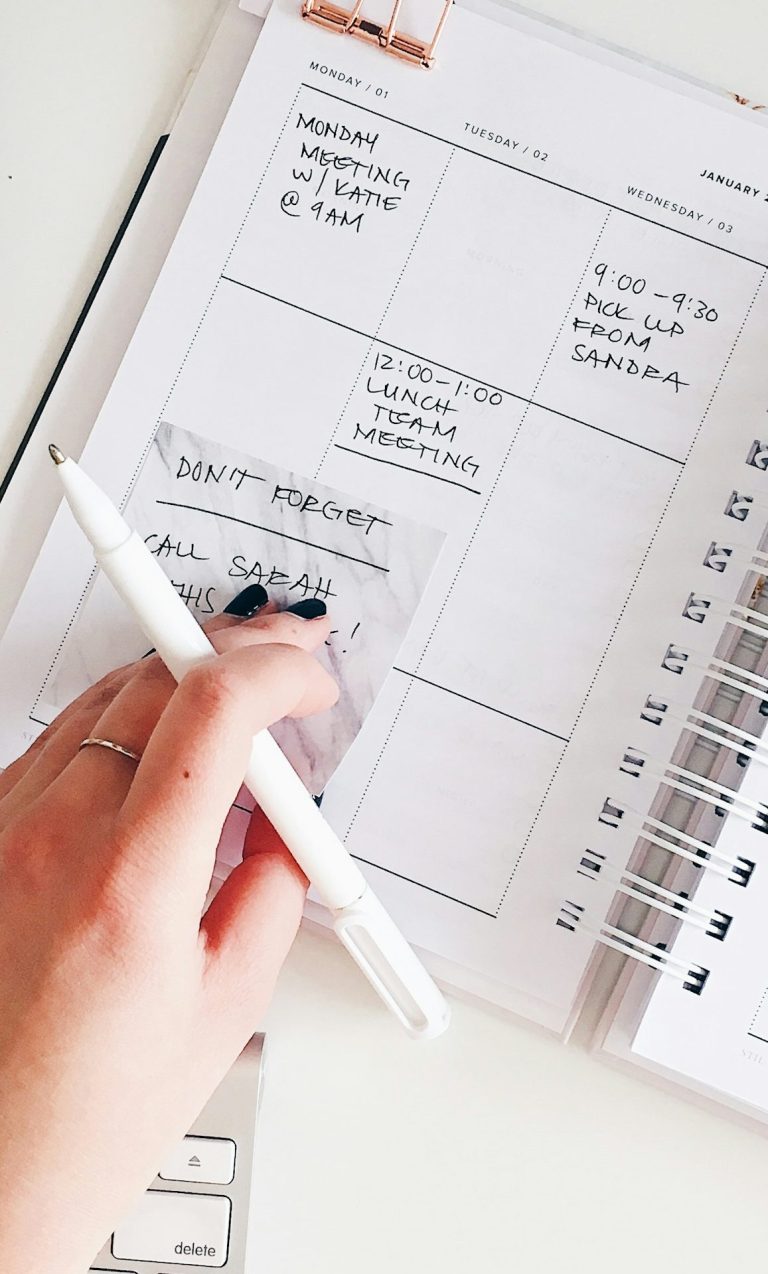 MONDAY / 01
MONDAY
MEETING
W/ KATIE
@ 9AM
TUESDAY / 02
12:00-1:00
LUNCH
TEAM
MEETING
JANUARY
WEDNESDAY / 03
9:00-9:30
PICK UP
FROM
SANDRA
DON'T FORGET
CALL SARAH
delete